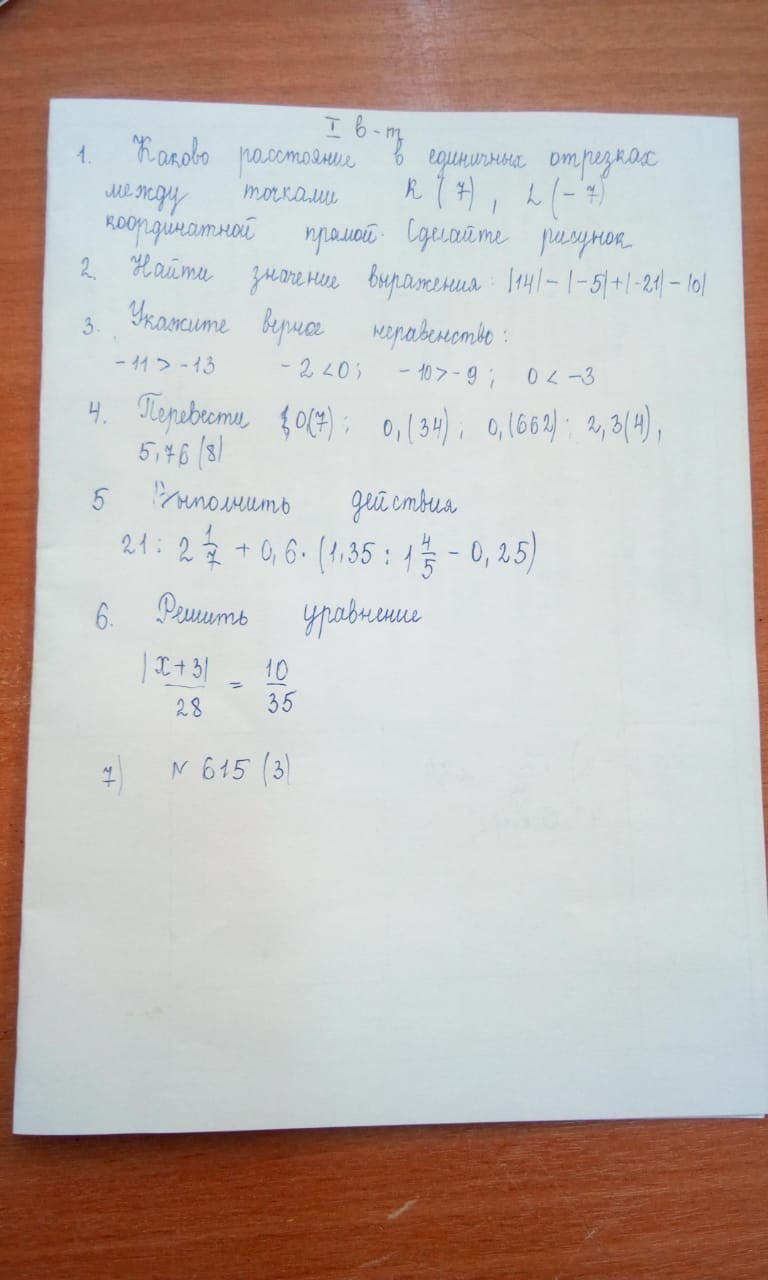 I в-т
1. Каково расстояние в единичных отрезках
между точками K(7), L(-7)
координатной прямой. Сделайте рисунок
2. Найти значение выражения: |14|-|-5|+|-21|-|0|
3. Укажите верное неравенство:
-11>-13 -2<0; -10>-9; 0<-3
4. Перевести 0(7); 0,(34); 0,(662); 2,3(4),
5,76(8)
5 Выполнить действия
21 : 2 1/7 + 0,6·(1,35 : 1 4/5 - 0,25)
6. Решить уравнение
|x+3|/28 = 10/35
7) N 615 (3)